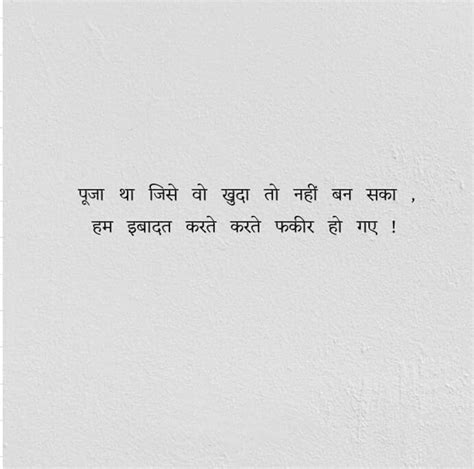 पूजा था जिसे वो ख़ुदा तो नहीं बन सका ,
हम इबादत करते करते फकीर हो गए !